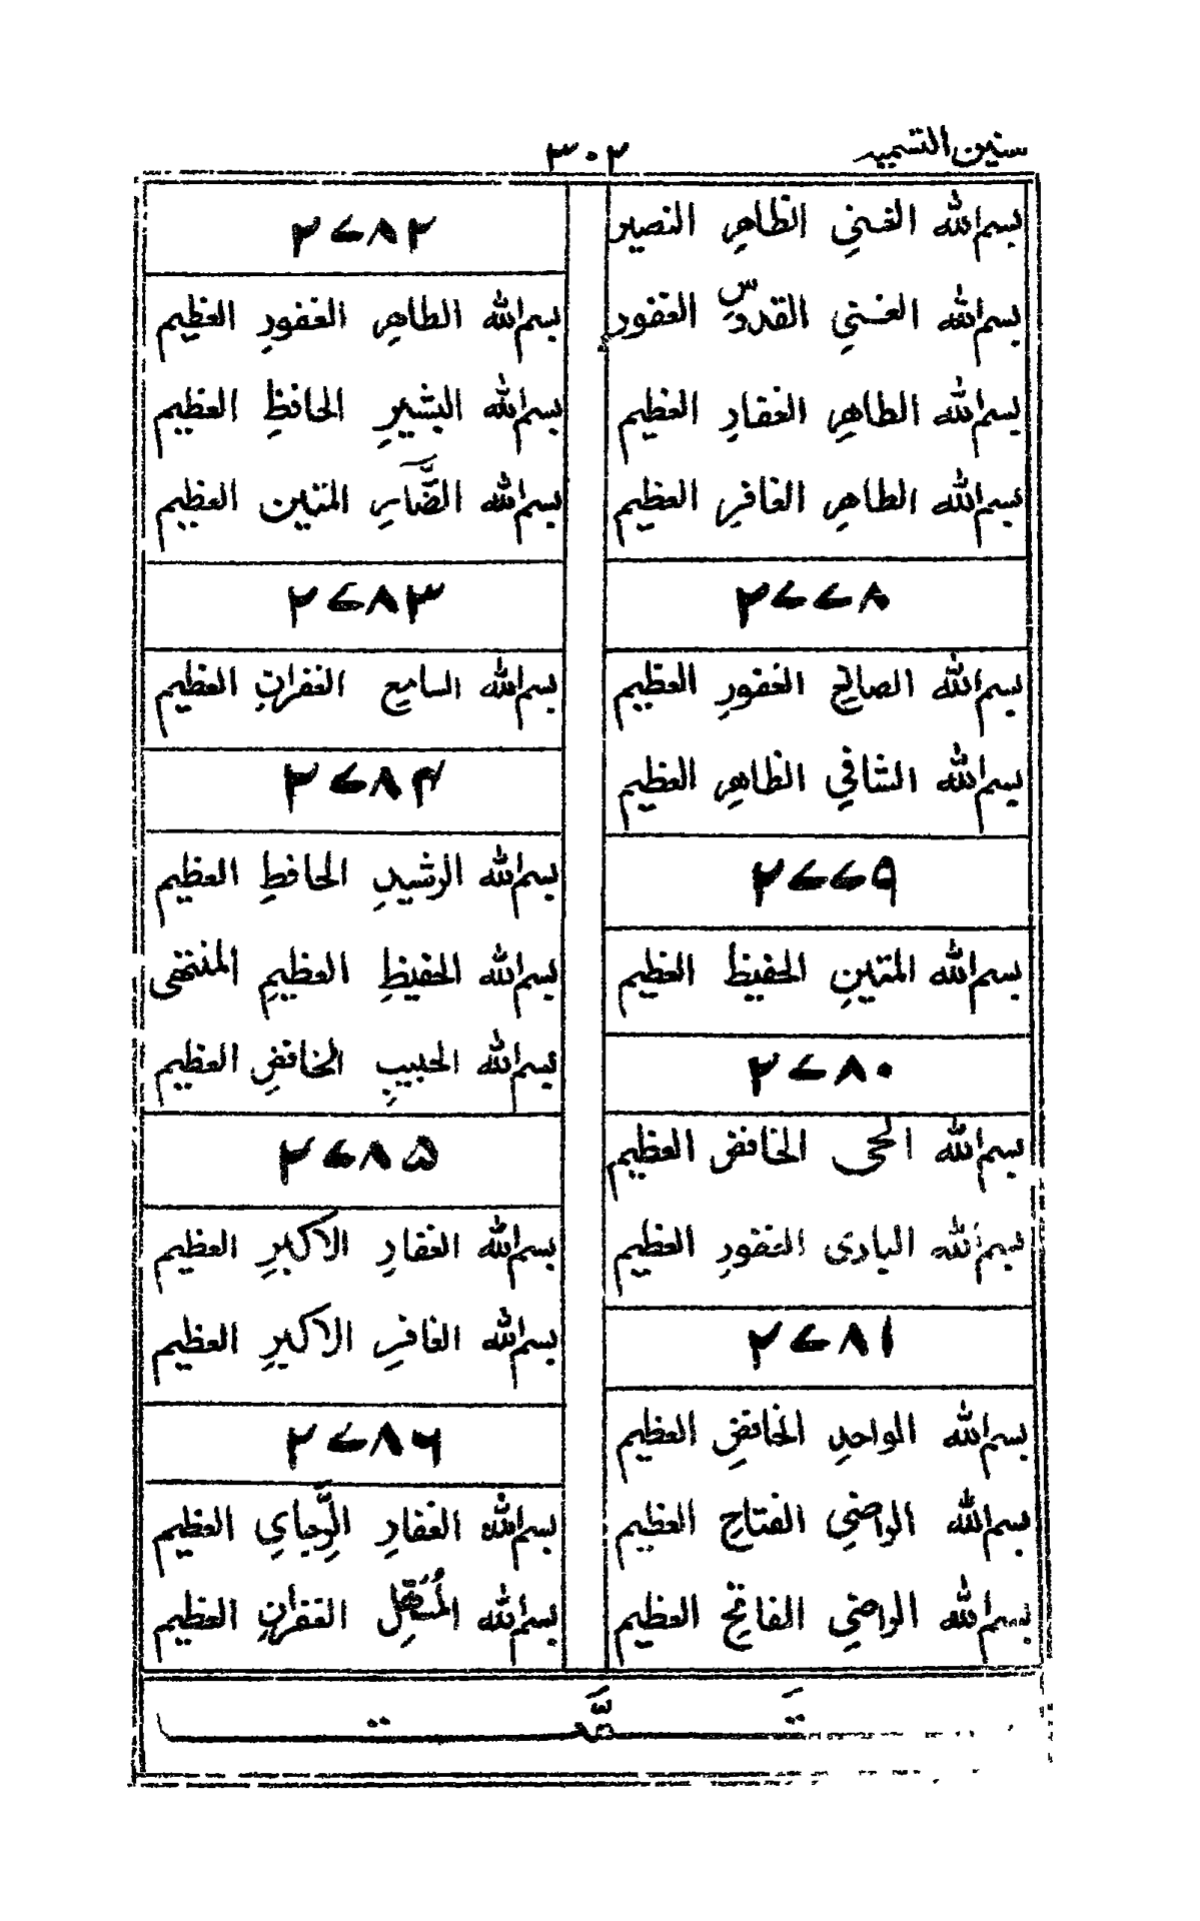 سنين التسميه
٣٠٢
بسم الله الغني الظاهر النصير
بسم الله الغني القدوس الغفور
بسم الله الطاهر الغفار العظيم
بسم الله الطاهر الغافر العظيم
٢٧٧٨
بسم الله الصالح الغفور العظيم
بسم الله الشافي الظاهر العظيم
٢٧٧٩
بسم الله المتين الحفيظ العظيم
٢٧٨٠
بسم الله الحى الخافض العظيم
بسم الله البارى الغفور العظيم
٢٧٨١
بسم الله الواحد الخافض العظيم
بسم الله الواضي الفتاح العظيم
بسم الله الواضي الفاتح العظيم
٢٧٨٢
بسم الله الطاهر الغفور العظيم
بسم الله البشير الحافظ العظيم
بسم الله الضَّآر المتين العظيم
٢٧٨٣
بسم الله السامع الغفران العظيم
٢٧٨٤
بسم الله الرشيد الحافظ العظيم
بسم الله الحفيظ العظيم المنتهى
بسم الله الحبيب الخافض العظيم
٢٧٨٥
بسم الله الغفار الاكبر العظيم
بسم الله الغافر الاكبر العظيم
٢٧٨٦
بسم الله الغفار العظيم
بسم الله الغفران العظيم
تَمَّت